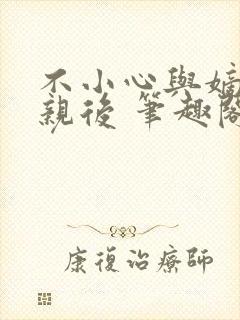 不小心與嫡
親後 筆趣閣
康復治療師